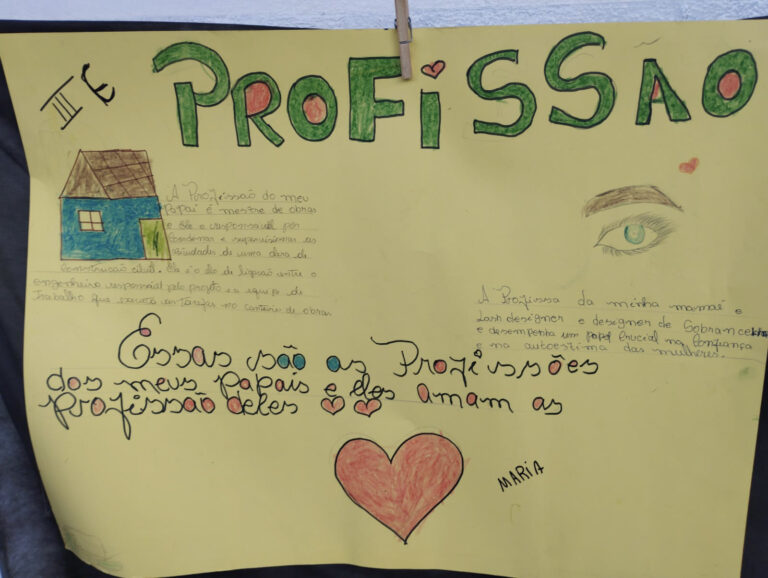 III E
PROFISSÃO
A Profissão do meu
Papai é mestre de obras
e ele e responsavel por
coordenar e supervisionar as
atividades de uma obra de
Construção civil. Ele é o elo de ligação entre o
engenheiro responsável pelo projeto e a equipe de
Trabalho que executa as tarefas no canteiro de obras
A Profissa da minha mamãe e
Lash designer e designer de Sobrancelha
e desempenha um papel Crucial na Confiança
e na autoestima das mulheres.
Essas são as Profissões
dos meus Papais e eles amam as
Profissão deles
MARIA